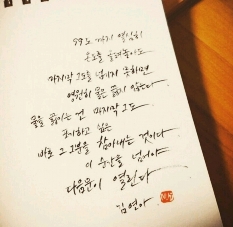 99도까지 열심히
온도를 올려놓아도
마지막 1도를 넘기지 못하면
영원히 물은 끓지 않는다
물을 끓이는 건 마지막 1도
포기하고 싶은
바로 그 1분을 참아내는 것이다
이 순간을 넘어야
다음문이 열린다
김연아